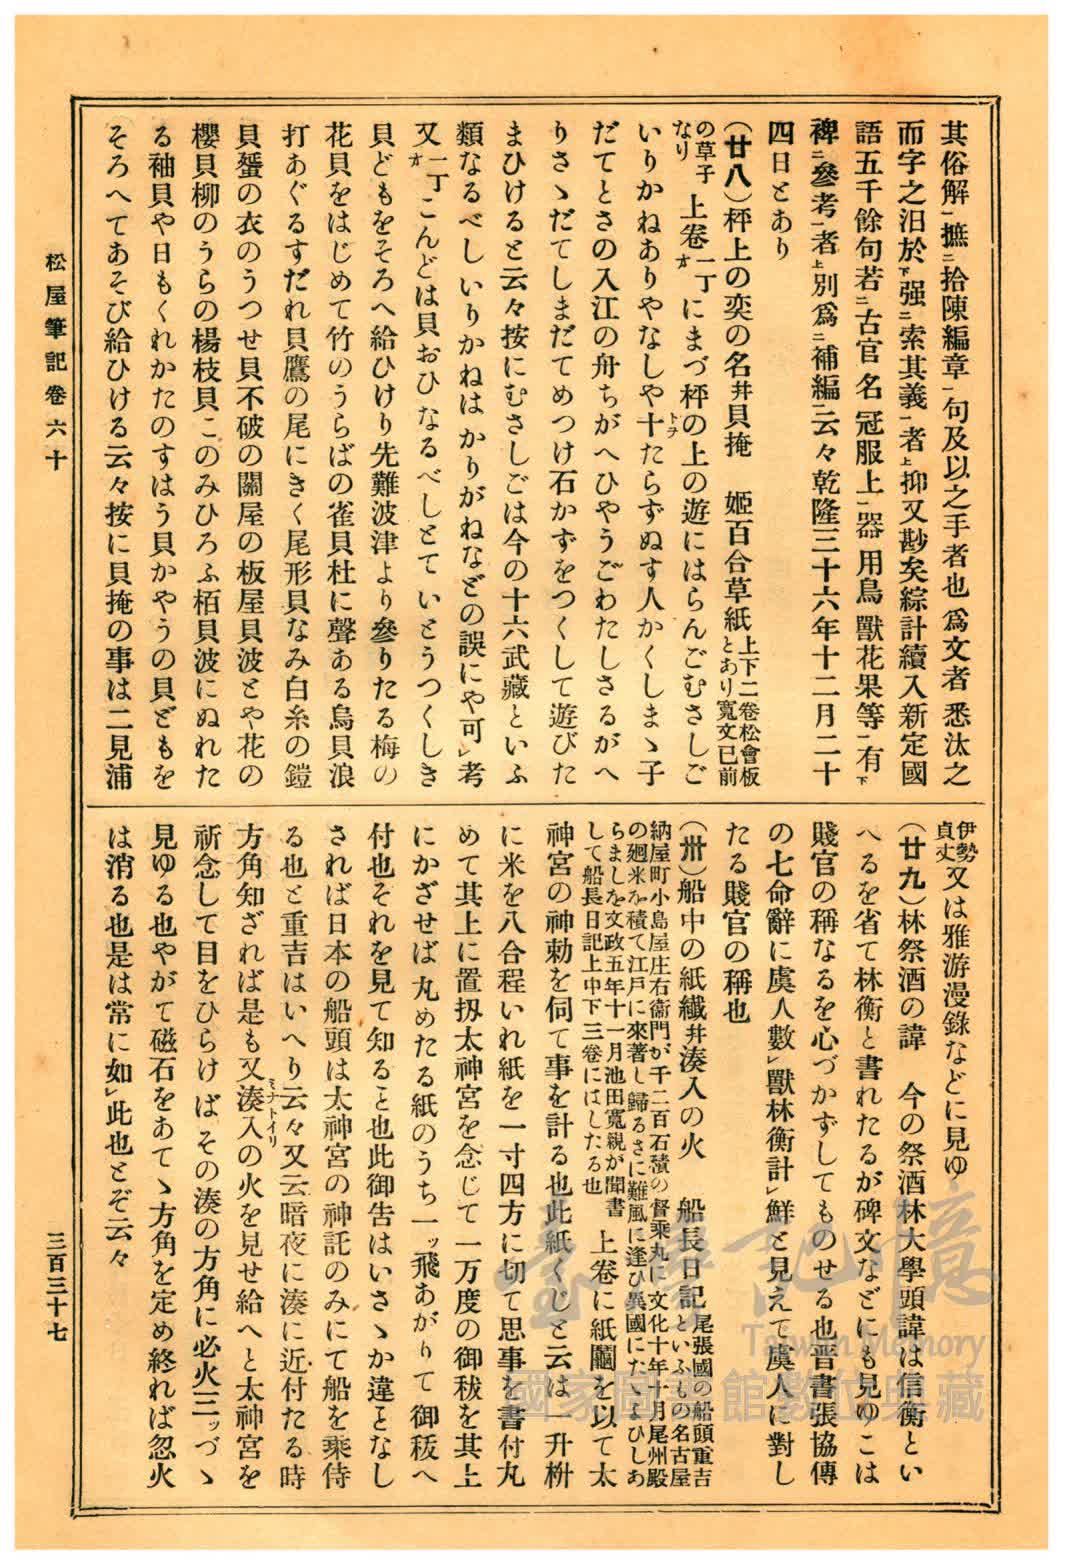 其俗解一摭二拾陳編章一句及以之手者也爲文者悉汰之
而字之汨於下强二索其義一者上抑又尠矣綜計續入新定國
語五千餘句若二古官名冠服上一器用鳥獸花果等一有下
裨二參考一者上別爲二補編一云々乾隆三十六年十二月二十
四日とあり
(廿八)枰上の奕の名幷貝掩 姬百合草紙上下二卷松會板とあり寬文已前
の草子なり 上卷一丁オにまづ枰の上の遊にはらんごむさしご
いりかねありやなしや十トヲたらずぬす人かくしまゝ子
だてとさの入江の舟ちがへひやうごわたしさるがへ
りさゝだてしまだてめつけ石かずをつくして遊びた
まひけると云々按にむさしごは今の十六武藏といふ
類なるべしいりかねはかりがねなどの誤にや可レ考
又一丁オこんどは貝おひなるべしとていとうつくしき
貝どもをそろへ給ひけり先難波津より參りたる梅の
花貝をはじめて竹のうらばの雀貝杜に聲ある烏貝浪
打あぐるすだれ貝鷹の尾にきく尾形貝なみ白糸の鎧
貝蜑の衣のうつせ貝不破の關屋の板屋貝波とや花の
櫻貝柳のうらの楊枝貝このみひろふ栢貝波にぬれた
る袖貝や日もくれかたのすはう貝かやうの貝どもを
そろへてあそび給ひける云々按に貝掩の事は二見浦
伊勢貞丈又は雅游漫錄などに見ゆ
(廿九)林祭酒の諱 今の祭酒林大學頭諱は信衡とい
へるを省て林衡と書れたるが碑文などにも見ゆこは
賤官の稱なるを心づかずしてものせる也晋書張協傳
の七命辭に虞人數レ獸林衡計レ鮮と見えて虞人に對し
たる賤官の稱也
(卅)船中の紙鬮幷湊入の火 船長日記尾張國の船頭重吉といふもの名古屋
納屋町小島屋庄右衞門が千二百石積の督乘丸に文化十年十月尾州殿
の廻米を積て江戶に來著し歸るさに難風に逢ひ異國にたゞよひしあ
らましを文政五年十一月池田寬親が聞書
して船長日記上中下三卷にはしたる也 上卷に紙鬮を以て太
神宮の神勅を伺て事を計る也此紙くじと云は一升枡
に米を八合程いれ紙を一寸四方に切て思事を書付丸
めて其上に置扨太神宮を念じて一万度の御秡を其上
にかざせば丸めたる紙のうち一ッ飛あがりて御秡へ
付也それを見て知ると也此御告はいさゝか違となし
されば日本の船頭は太神宮の神託のみにて船を乘侍
る也と重吉はいへり云々又云暗夜に湊に近付たる時
方角知ざれば是も又湊入ミナトイリの火を見せ給へと太神宮を
祈念して目をひらけばその湊の方角に必火三ッづゝ
見ゆる也やがて磁石をあてゝ方角を定め終れば忽火
は消る也是は常に如レ此也とぞ云々
松屋筆記卷六十
三百三十七
臺灣記憶
Taiwan Memory
國家圖書館數位典藏